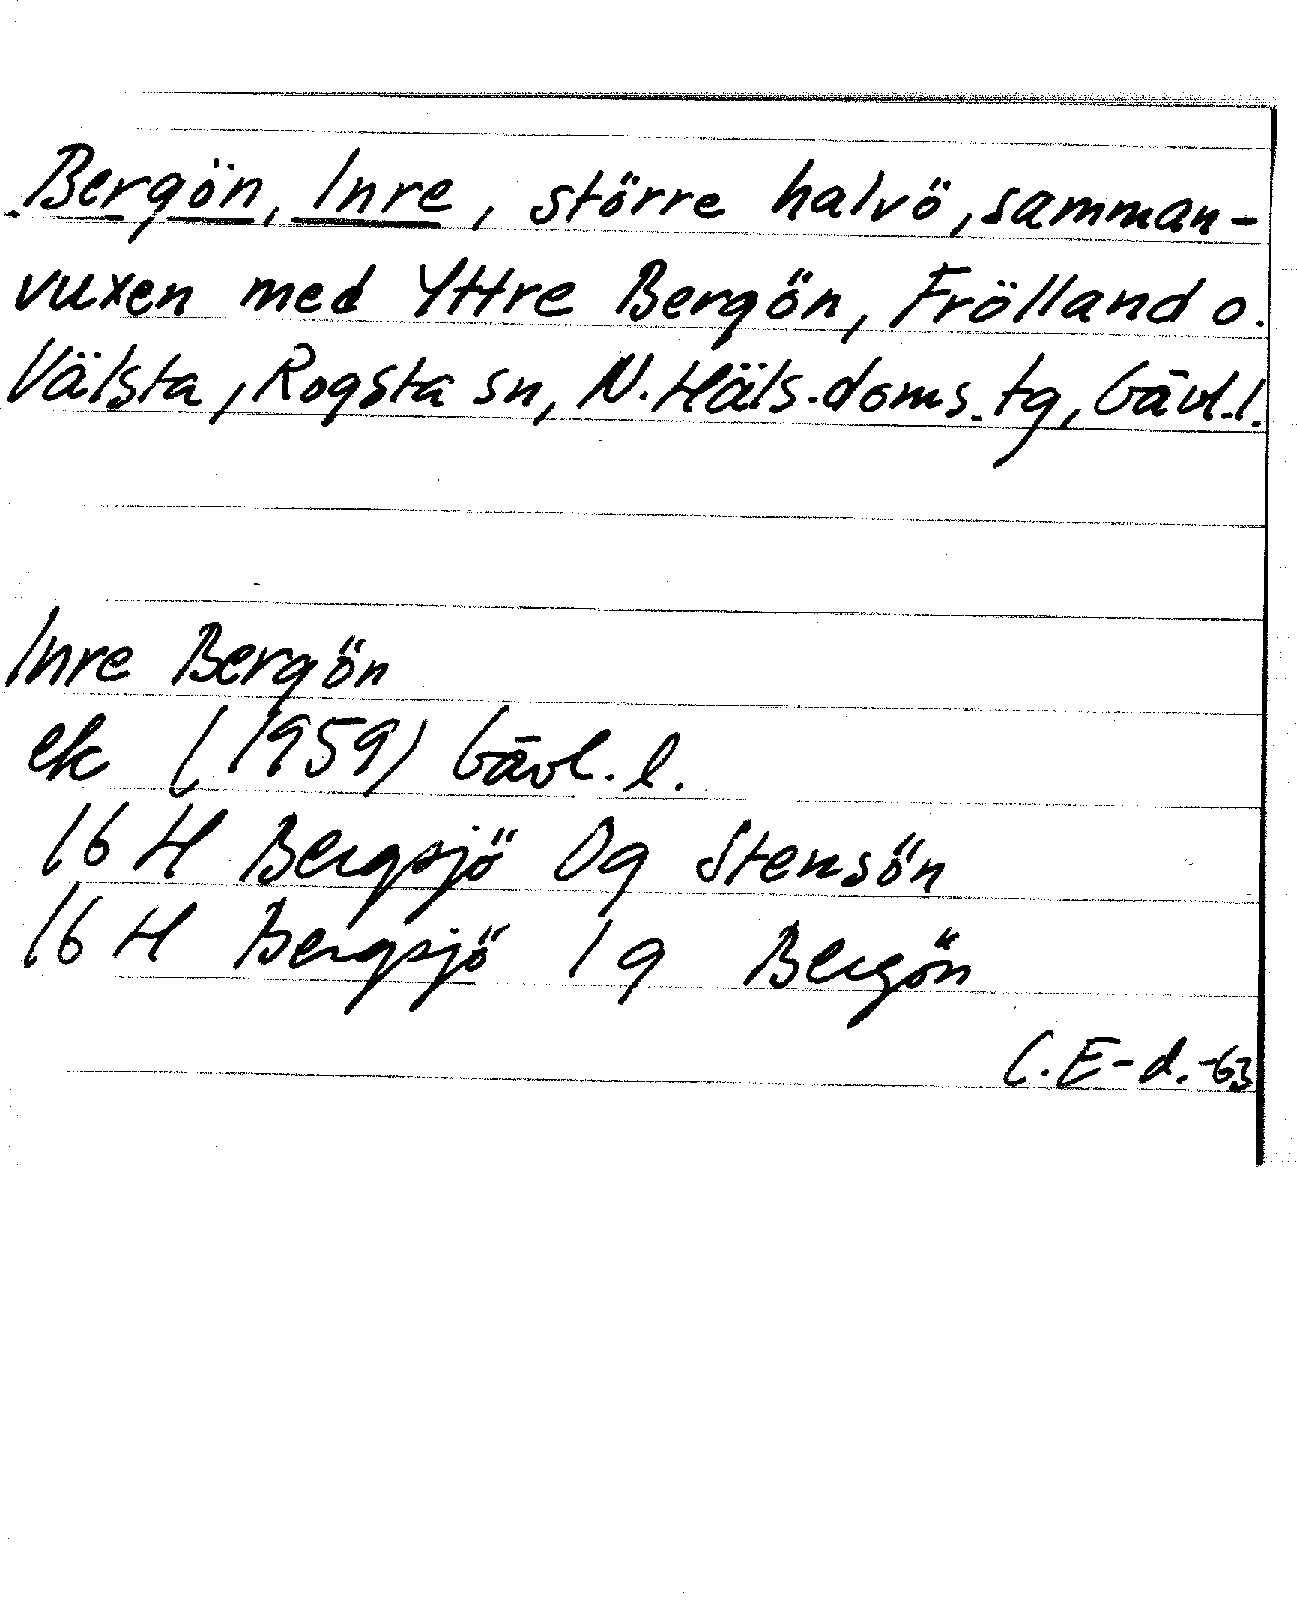 Bergön, Inre, större halvö, samman-
vuxen med Yttre Bergön, Frölland o.
Välsta, Rogsta sn, N. Häls. doms. tg, Gävl. l.
Inre Bergön
ek (1959) Gävl. l.
16 H Bergsjö 0g Stensön
16 H Bergsjö 1g Bergön
C. E-d. -63